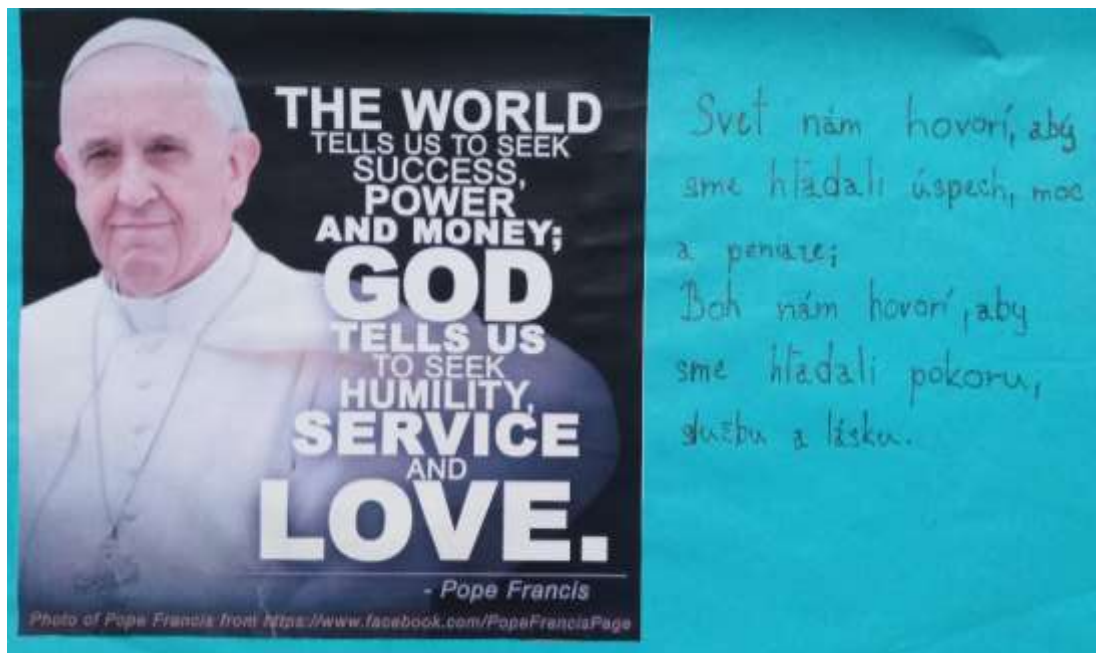 THE WORLD
TELLS US TO SEEK
SUCCESS,
POWER
AND MONEY;
GOD
TELLS US
TO SEEK
HUMILITY,
SERVICE
AND
LOVE.
- Pope Francis
Photo of Pope Francis from https://www.facebook.com/PopeFrancisPage
Svet nám hovorí, aby
sme hľadali úspech, moc
a peniaze;
Boh nám hovorí, aby
sme hľadali pokoru,
službu a lásku.